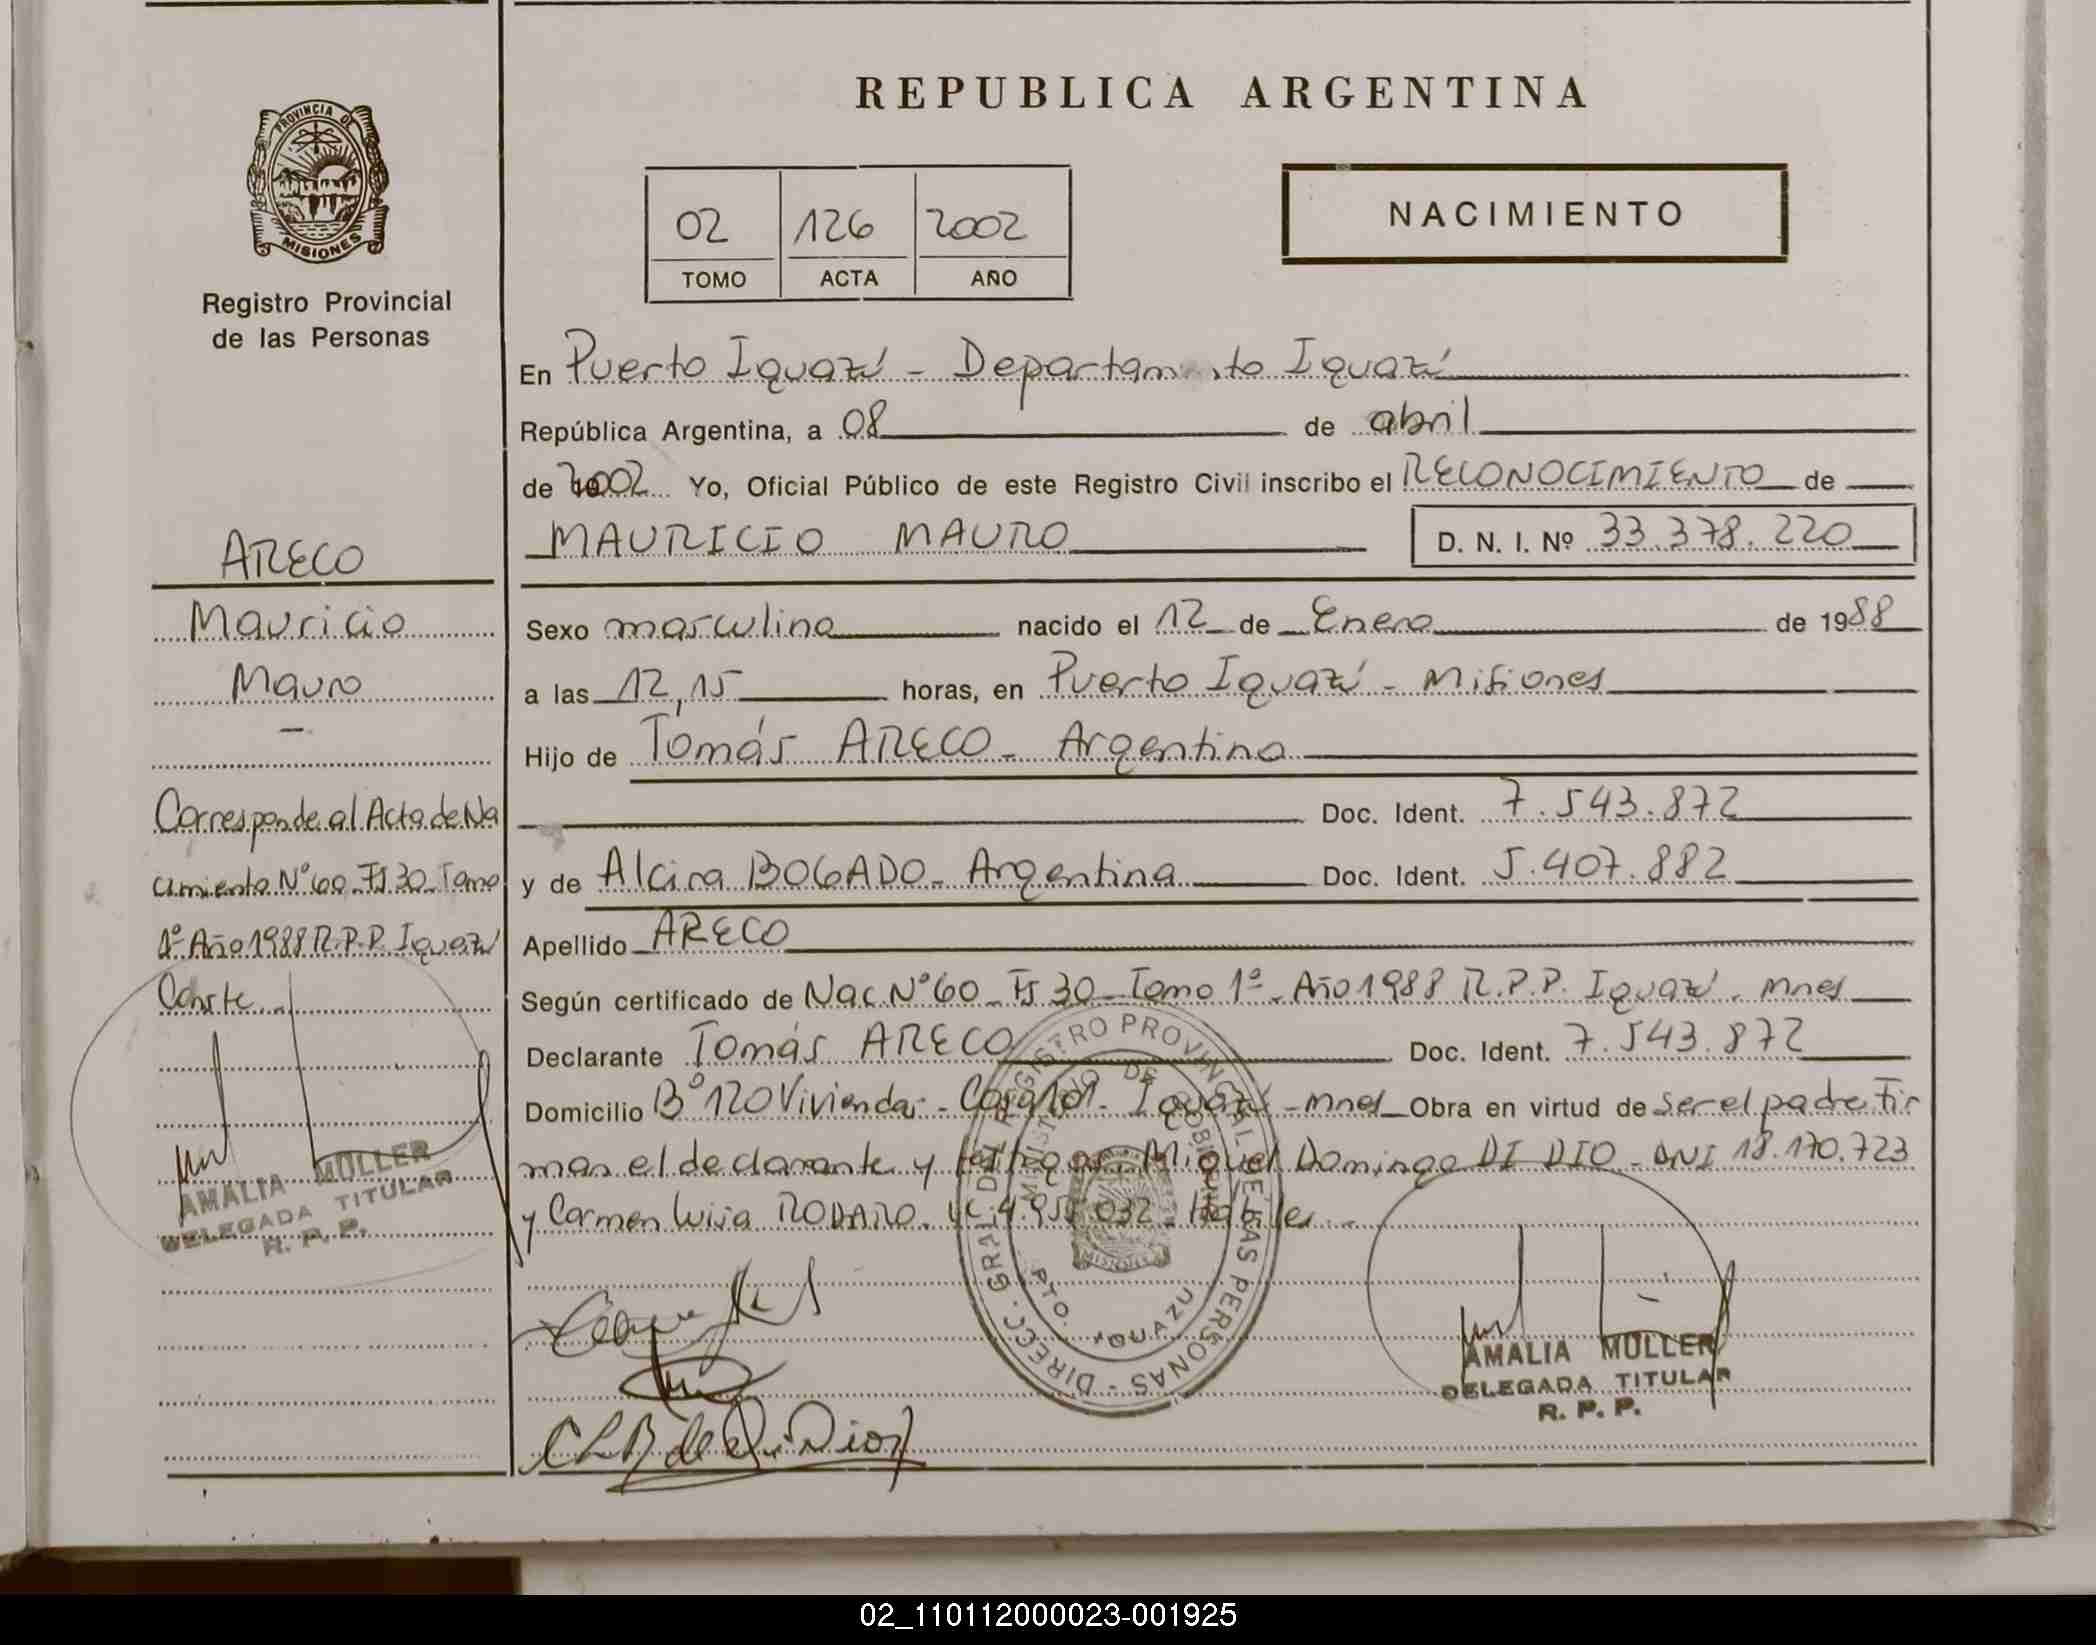 REPUBLICA ARGENTINA
PROVINCIA DE
MISIONES
Registro Provincial
de las Personas
NACIMIENTO
02 126 2002
TOMO ACTA AÑO
En Puerto Iguazú - Departamento Iguazú
República Argentina, a 08 de abril
de 2002 Yo, Oficial Público de este Registro Civil inscribo el RECONOCIMIENTO de
MAURICIO MAURO D. N. I. Nº 33.378.220
Sexo masculino nacido el 12 de Enero de 1988
a las 12,15 horas, en Puerto Iguazú - Misiones
Hijo de Tomás ARECO - Argentino
Doc. Ident. 7.543.872
y de Alcira BOGADO - Argentina Doc. Ident. 5.407.882
Apellido ARECO
Según certificado de Nac. Nº 60 - Fs 30 - Tomo 1º - Año 1988 R.P.P. Iguazú - Mnes
Declarante Tomás ARECO Doc. Ident. 7.543.872
Domicilio Bº 120 Viviendas - Casa 101 - Iguazú - Mnes Obra en virtud de ser el padre Fir
man el declarante y testigos: Miguel Domingo DI DIO - DNI 18.170.723
y Carmen Luisa RODARO. LC 4.955.032 - Hábiles -
ARECO
Mauricio
Mauro
-
Corresponde al Acta de Na
cimiento Nº 60 - Fs 30 - Tomo
1º Año 1988 R.P.P. Iguazú
Conste
AMALIA MULLER
DELEGADA TITULAR
R. P. P.
DIRECC. GRAL. DEL REGISTRO PROVINCIAL DE LAS PERSONAS
MINISTERIO DE GOBIERNO
MISIONES
PTO. IGUAZU
AMALIA MULLER
DELEGADA TITULAR
R. P. P.
02_110112000023-001925